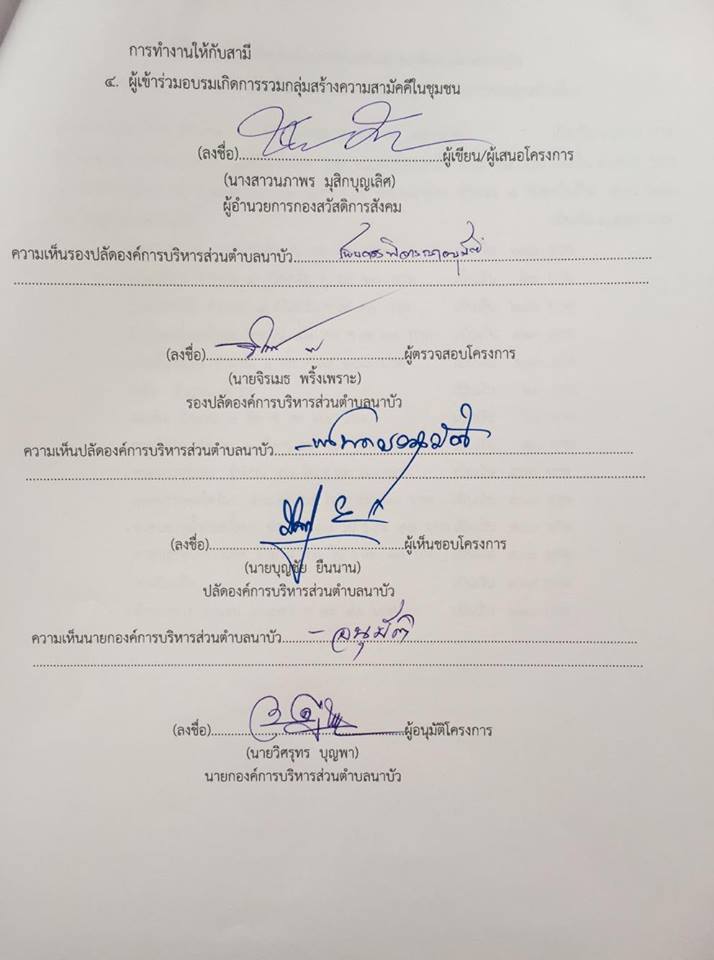 การทำงานให้กับสามี
๔. ผู้เข้าร่วมอบรมเกิดการรวมกลุ่มสร้างความสามัคคีในชุมชน
(ลงชื่อ)............................................ผู้เขียน/ผู้เสนอโครงการ
(นางสาวนภาพร มุสิกบุญเลิศ)
ผู้อำนวยการกองสวัสดิการสังคม
ความเห็นรองปลัดองค์การบริหารส่วนตำบลนาบัว..........
(ลงชื่อ)............................................ผู้ตรวจสอบโครงการ
(นายจิรเมธ พริ้งเพราะ)
รองปลัดองค์การบริหารส่วนตำบลนาบัว
ความเห็นปลัดองค์การบริหารส่วนตำบลนาบัว..........
(ลงชื่อ)............................................ผู้เห็นชอบโครงการ
(นายบุญชัย ยืนนาน)
ปลัดองค์การบริหารส่วนตำบลนาบัว
ความเห็นนายกองค์การบริหารส่วนตำบลนาบัว....... - อนุมัติ
(ลงชื่อ)............................................ผู้อนุมัติโครงการ
(นายวิศรุทร บุญพา)
นายกองค์การบริหารส่วนตำบลนาบัว